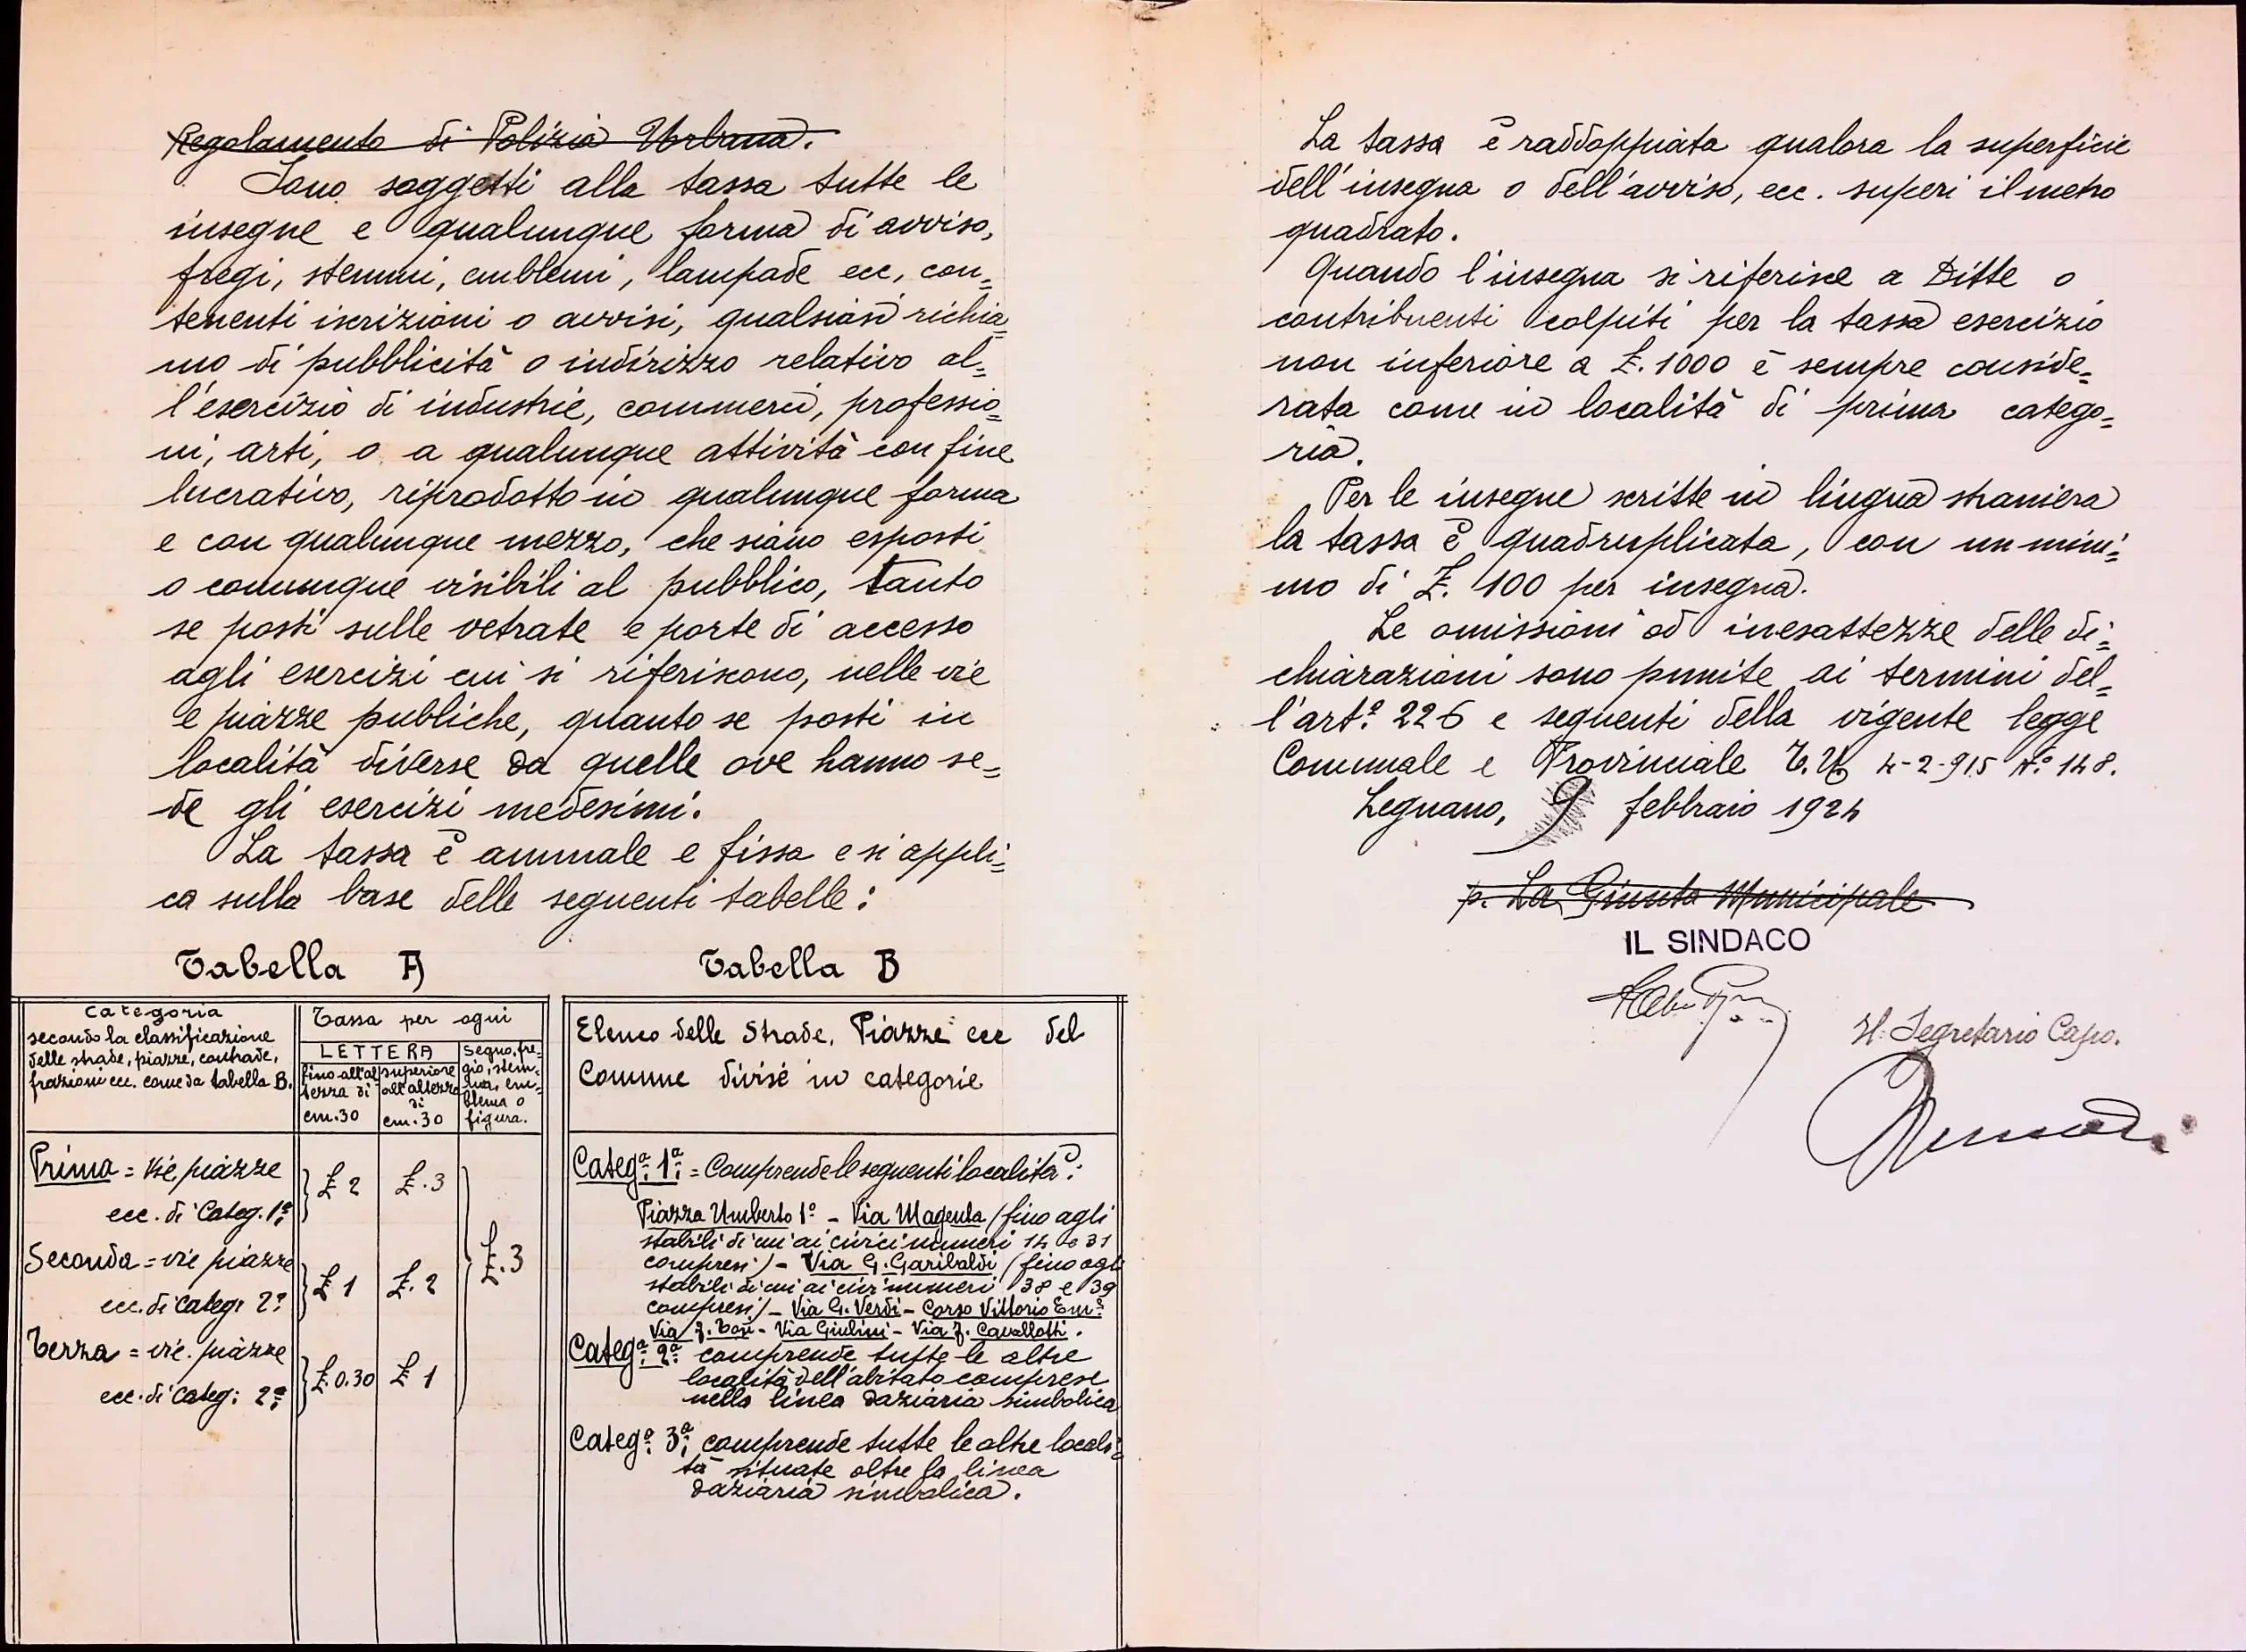 Regolamento di Polizia Urbana.
Sono soggetti alla tassa tutte le
insegne e qualunque forma di avviso,
fregi, stemmi, emblemi, lampade ecc, con=
tenenti iscrizioni o avvisi, qualsiasi richia=
mo di pubblicità o indirizzo relativo al=
l'esercizio di industrie, commerci, professio=
ni, arti, o a qualunque attività con fine
lucrativo, riprodotto in qualunque forma
e con qualunque mezzo, che siano esposti
o comunque visibili al pubblico, tanto
se posti sulle vetrate e porte di accesso
agli esercizi cui si riferiscono, nelle vie
e piazze publiche, quanto se posti in
località diverse da quelle ove hanno se=
de gli esercizi medesimi.
La tassa è annuale e fissa e si appli=
ca sulla base delle seguenti tabelle:
Tabella A
Categoria
secondo la classificazione
delle strade, piazze, contrade,
frazioni ecc. come da tabella B.
Tassa per ogni
LETTERA
fino all'al
tezza di
cm. 30
superiore
all'altezza
di
cm. 30
Segno, fre=
gio, stem=
ma, em=
blema o
figura.
Prima = vie, piazze
ecc. di Categ. 1ª
£ 2 £. 3
Seconda = vie piazze
ecc. di Categ: 2ª
£ 1 £. 2
£. 3
Terza = vie. piazze
ecc. di Categ: 2ª
£. 0.30 £ 1
Tabella B
Elenco delle Strade, Piazze ecc del
Comune divise in categorie
Categª: 1ª: = Comprende le seguenti località:
Piazza Umberto 1º - Via Magenta (fino agli
stabili di cui ai civici numeri 14 e 31
compresi) - Via G. Garibaldi (fino agli
stabili di cui ai civ. numeri 38 e 39
compresi) - Via G. Verdi - Corso Vittorio Em.e
Via F. Tosi - Via Giulini - Via F. Cavallotti.
Categª: 2ª: comprende tutte le altre
località dell'abitato comprese
nella linea daziaria simbolica
Categª: 3ª: comprende tutte le altre locali=
tà situate oltre la linea
daziaria simbolica.
La tassa è raddoppiata qualora la superficie
dell'insegna o dell'avviso, ecc. superi il metro
quadrato.
Quando l'insegna si riferisce a Ditte o
contribuenti colpiti per la tassa esercizio
non inferiore a £. 1000 è sempre conside=
rata come in località di prima catego=
ria.
Per le insegne scritte in lingua straniera
la tassa è quadruplicata, con un mini=
mo di £. 100 per insegna.
Le omissioni od inesattezze delle di=
chiarazioni sono punite ai termini del=
l'artº. 226 e seguenti della vigente legge
Comunale e Provinciale T.U. 4-2-915 Nº. 148.
Legnano, 9 febbraio 1924
p. La Giunta Municipale
IL SINDACO
Il Segretario Capo.